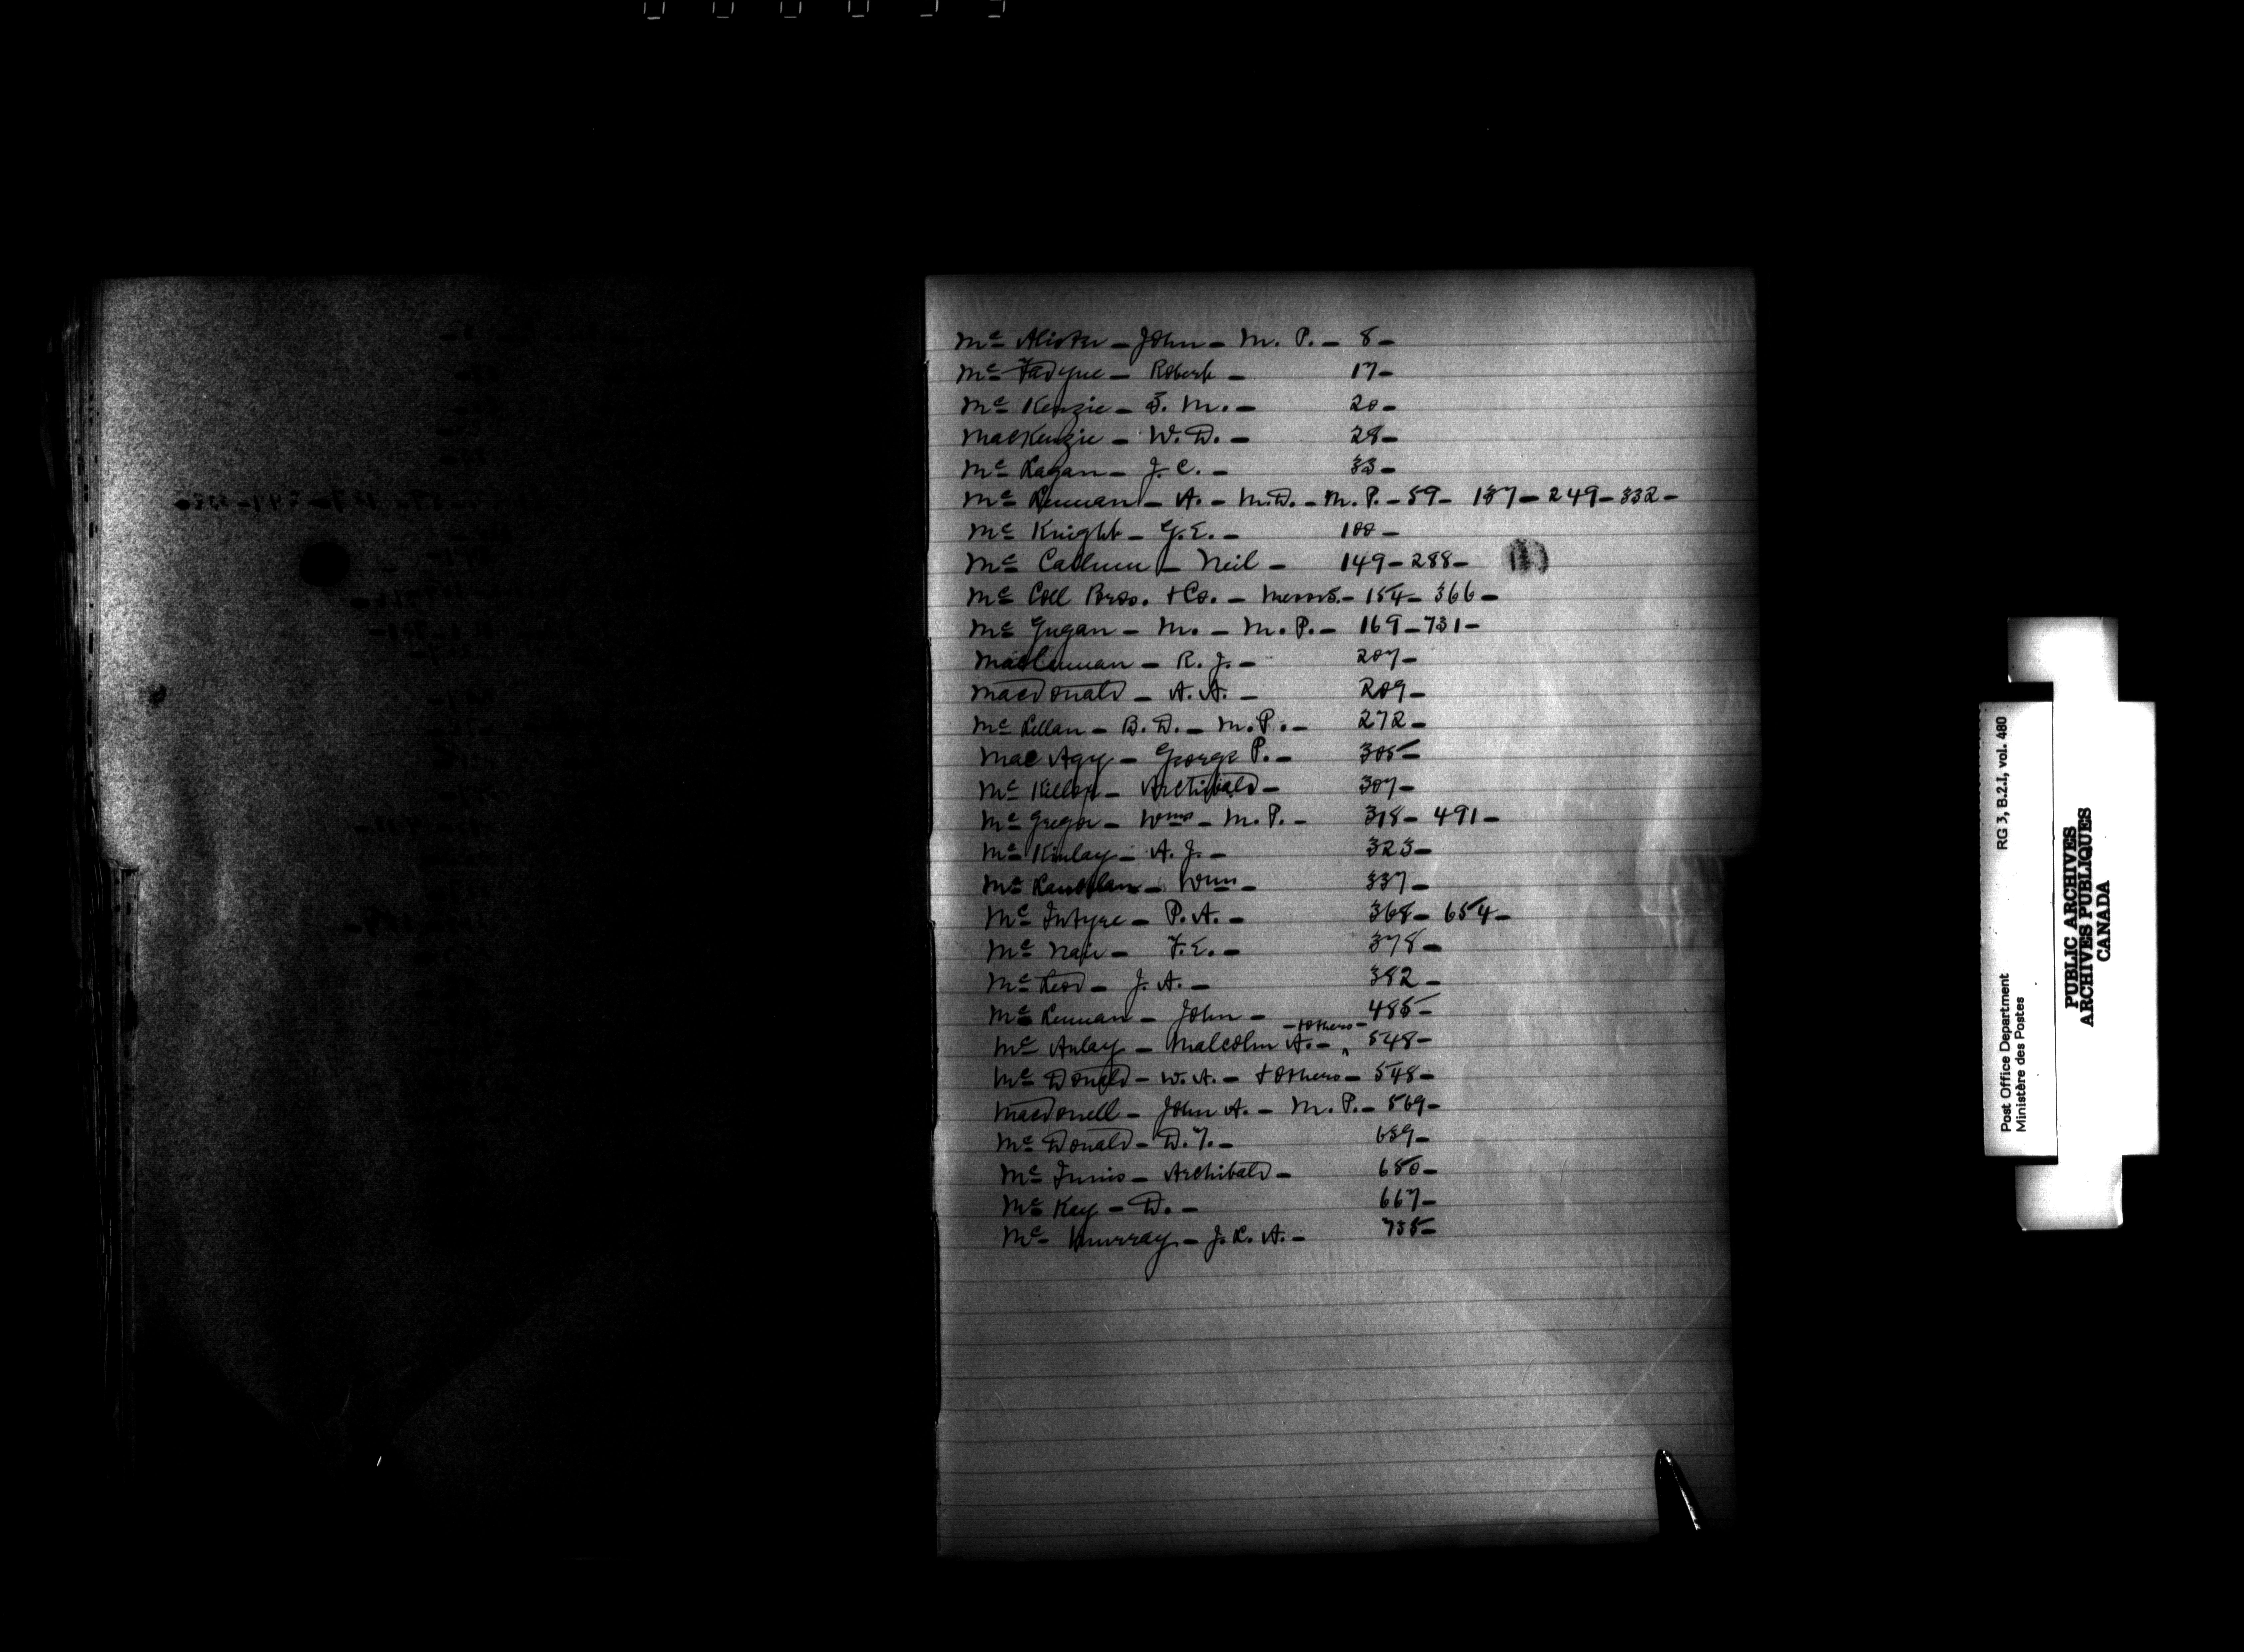 Mc Alister - John - M. P. - 8 -
Mc Fadyne - Robert - 17 -
Mc Kenzie - J. M. - 20 -
MacKenzie - W. D. - 28 -
Mc Lagan - J. C. - 33 -
Mc Lennan - A. - M.D. - M. P. - 59 - 137 - 249 - 332 -
Mc Knight - G. E. - 100 -
Mc Callum - Neil - 149 - 288 -
Mc Coll Bros. & Co. - Messrs. - 154 - 366 -
Mc Gugan - M. - M. P. - 169 - 731 -
MacLennan - R. J. - 207 -
Macdonald - A. A. - 209 -
Mc Lellan - B. D. - M. P. - 272 -
Mac Agy - George P. - 305 -
Mc Killop - Archibald - 307 -
Mc Gregor - Wm - M. P. - 318 - 491 -
Mc Kinlay - A. J. - 323 -
Mc - Wm - 337 -
Mc Intyre - P. A. - 368 - 654 -
Mc Nair - F. E. - 378 -
Mc Leod - J. A. - 382 -
Mc Lennan - John - 485 -
Mc Aulay - Malcolm A. - & Others - 548 -
Mc Donald - W. A. - & Others - 548 -
Macdonell - John A. - M. P. - 569 -
Mc Donald - D. F. - 639 -
Mc Innis - Archibald - 650 -
Mc Kay - D. - 667 -
Mc Murray - J. R. A. - 735 -
Post Office Department RG 3, B.2.I, vol. 480
Ministère des Postes
PUBLIC ARCHIVES
ARCHIVES PUBLIQUES
CANADA